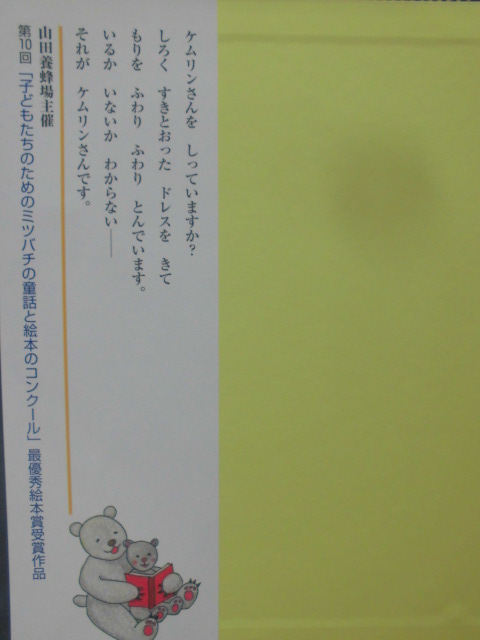 ケムリンさんを　しっていますか？
しろく　すきとおった　ドレスを　きて
もりを　ふわり　ふわり　とんでいます。
いるか　いないか　わからない――
それが　ケムリンさんです。
山田養蜂場主催
第10回「子どもたちのためのミツバチの童話と絵本のコンクール」最優秀絵本賞受賞作品